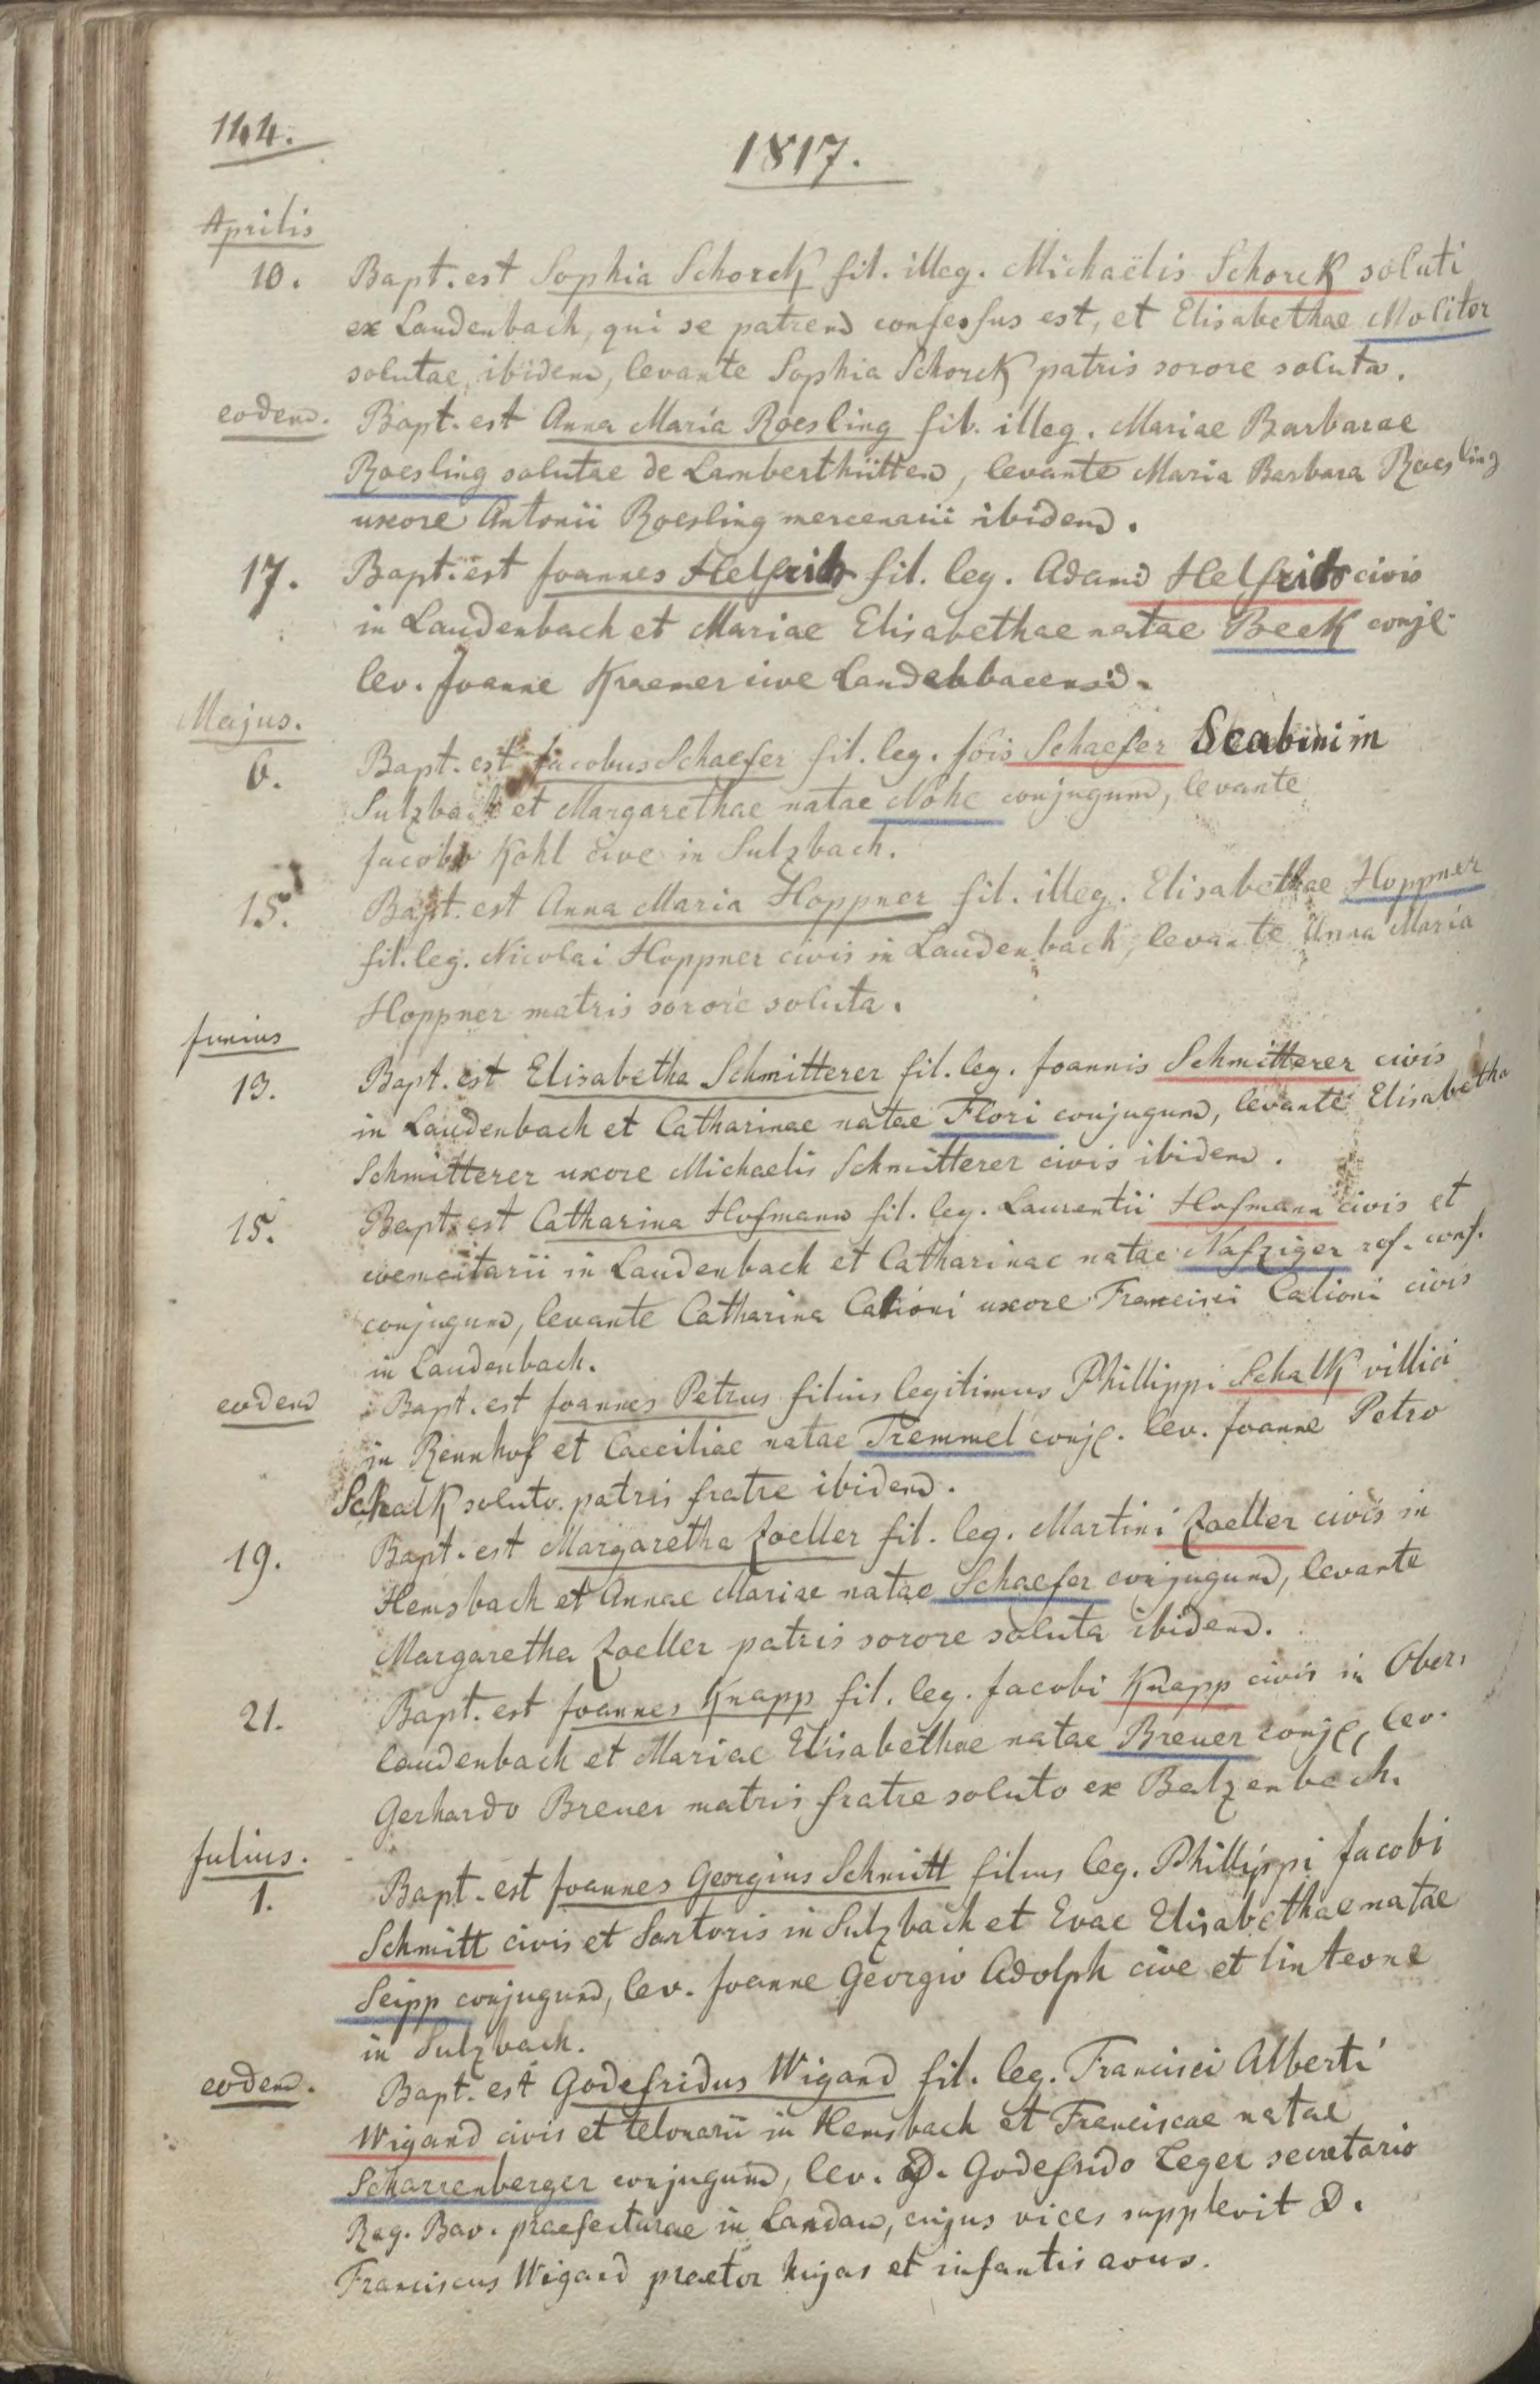 144.
1817.
Aprilis
10. Bapt. est Sophia Schorck fil. illeg. Michaëlis Schorck soluti
ex Laudenbach, qui se patrem confessus est, et Elisabethae Molitor
solutae ibidem, levante Sophia Schorck patris sorore soluta.
eodem. Bapt. est Anna Maria Roesling fil. illeg. Mariae Barbarae
Roesling solutae de Lamberthütten, levante Maria Barbara Roesling
uxore Antonii Roesling mercenarii ibidem.
17. Bapt. est Joannes Helfrich fil. leg. Adami Helfrich civis
in Laudenbach et Mariae Elisabethae natae Beek conjg.
lev. Joanne Kraemer cive Laudenbacensi.
Majus.
6. Bapt. est Jacobus Schaefer fil. leg. Jois Schaefer Scabini in
Sulzbach et Margarethae natae Nohe conjugum, levante
Jacobo Kohl cive in Sulzbach.
15. Bapt. est Anna Maria Hoppner fil. illeg. Elisabethae Hoppner
fil. leg. Nicolai Hoppner civis in Laudenbach, levante Anna Maria
Hoppner matris sorore soluta.
Junius
13. Bapt. est Elisabetha Schmitterer fil. leg. Joannis Schmitterer civis
in Laudenbach et Catharinae natae Flori conjugum, levante Elisabetha
Schmitterer uxore Michaelis Schmitterer civis ibidem.
15. Bapt. est Catharina Hofmann fil. leg. Laurentii Hofmann civis et
coementarii in Laudenbach et Catharinae natae Nafziger ref. conf.
conjugum, levante Catharina Calioni uxore Francisci Calioni civis
in Laudenbach.
eodem Bapt. est Joannes Petrus filius legitimus Phillippi Schalk villici
in Rennhof et Caeciliae natae Tremmel conjg. lev. Joanne Petro
Schalk soluto patris fratre ibidem.
19. Bapt. est Margaretha Zoeller fil. leg. Martini Zoeller civis in
Hemsbach et Annae Mariae natae Schaefer conjugum, levante
Margaretha Zoeller patris sorore soluta ibidem.
21. Bapt. est Joannes Knapp fil. leg. Jacobi Knapp civis in Ober,
laudenbach et Mariae Elisabethae natae Breuer conjg, lev.
Gerhardo Breuer matris fratre soluto ex Balzenbach.
Julius.
1. Bapt. est Joannes Georgius Schmitt filius leg. Phillippi Jacobi
Schmitt civis et Sartoris in Sulzbach et Evae Elisabethae natae
Seipp conjugum, lev. Joanne Georgio Adolph cive et linteone
in Sulzbach.
eodem. Bapt. est Godefridus Wigand fil. leg. Francisci Alberti
Wigand civis et telonarii in Hemsbach et Franciscae natae
Scharrenberger conjugum, lev. D. Godefrido Leger secretario
Reg. Bav. praefecturae in Landau, cujus vices supplevit D.
Franciscus Wigand praetor hujas et infantis avus.